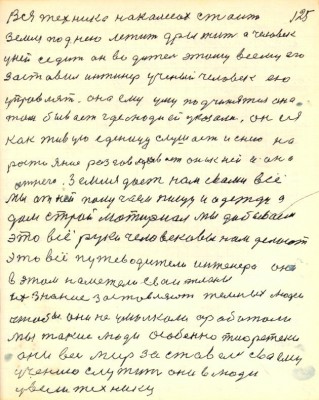 125
Вся техника на колесах стоит
Земля под нею летит дрыжит а человек
у ней седит он водител этому всему его
заставил инжинер ученый человек ею
управлят. она ему уму подчиняется она
там бывает где людий указали, он ея
как живую еденицу слушает и с нею на
ростояние розговаривает он и к ней и она
от него. Земля дает нам с вами всё
мы от ней получаем пищу и одежду а
дом строй мотириал мы добываем
это всё руки человековы нам делают
это всё путеводители инженера они
в этом наметели сваи планы
их знание заставляют темных людей
чтобы они не умолкали а работали
мы такие люди особенно тиоретики
они весь мир заставели своему
учению служить они в люди
ввели технику